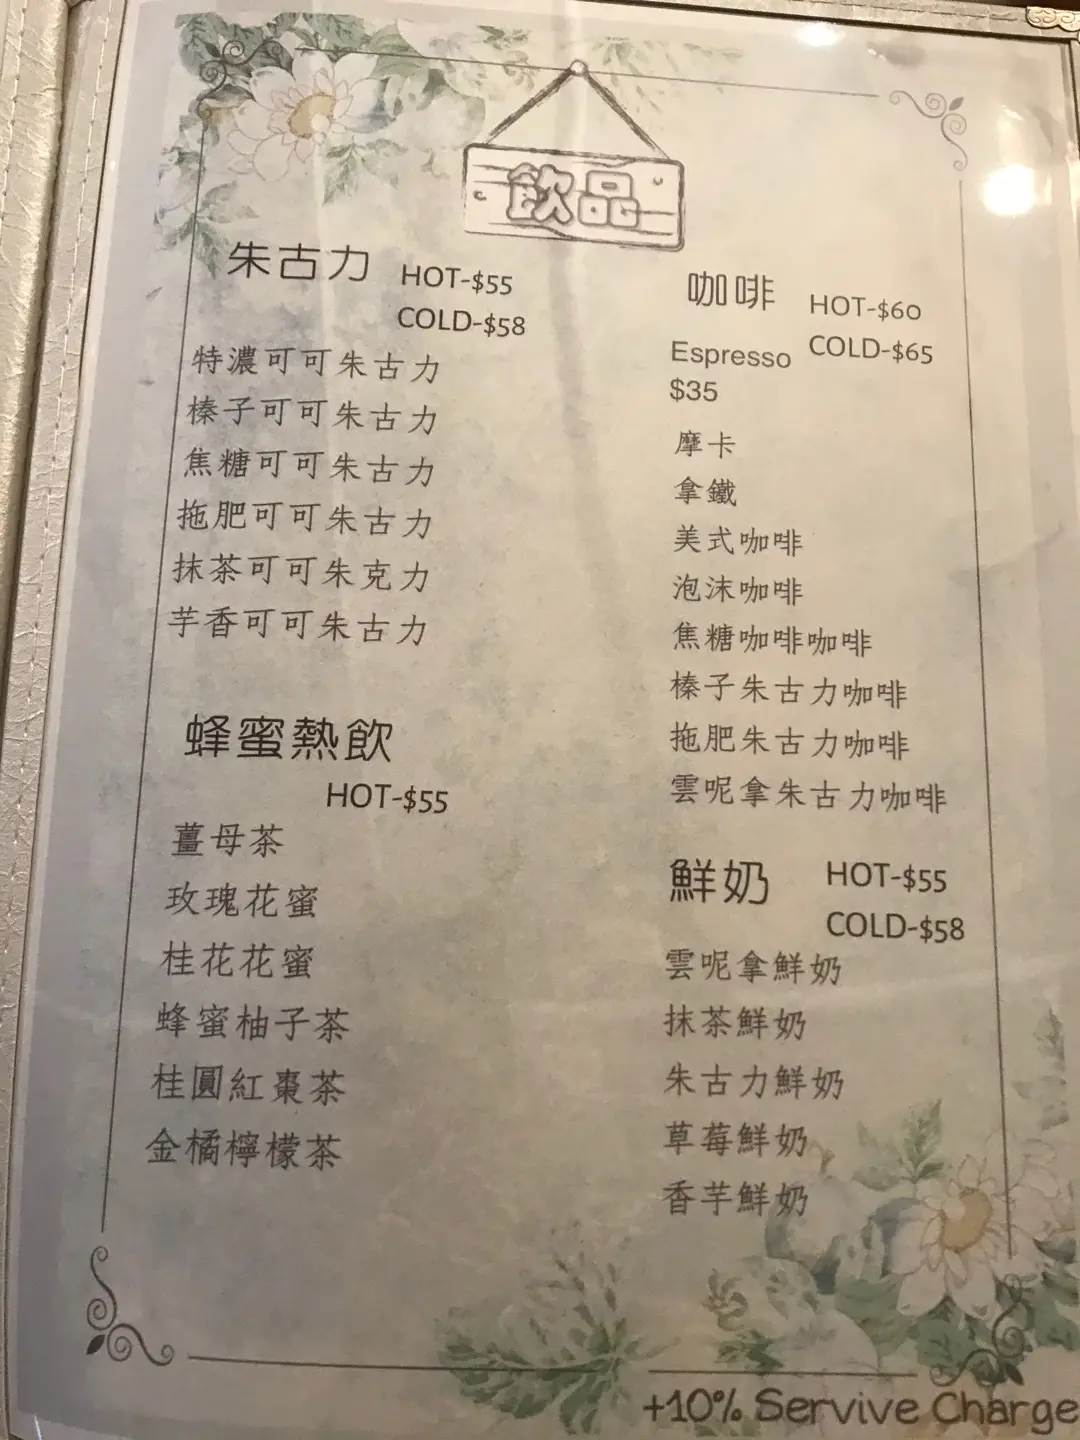 飲品
朱古力
HOT-$55
COLD-$58
特濃可可朱古力
榛子可可朱古力
焦糖可可朱古力
拖肥可可朱古力
抹茶可可朱克力
芋香可可朱古力
蜂蜜熱飲
HOT-$55
薑母茶
玫瑰花蜜
桂花花蜜
蜂蜜柚子茶
桂圓紅棗茶
金橘檸檬茶
咖啡
HOT-$60
COLD-$65
Espresso
$35
摩卡
拿鐵
美式咖啡
泡沫咖啡
焦糖咖啡咖啡
榛子朱古力咖啡
拖肥朱古力咖啡
雲呢拿朱古力咖啡
鮮奶
HOT-$55
COLD-$58
雲呢拿鮮奶
抹茶鮮奶
朱古力鮮奶
草莓鮮奶
香芋鮮奶
+10% Servive Charge